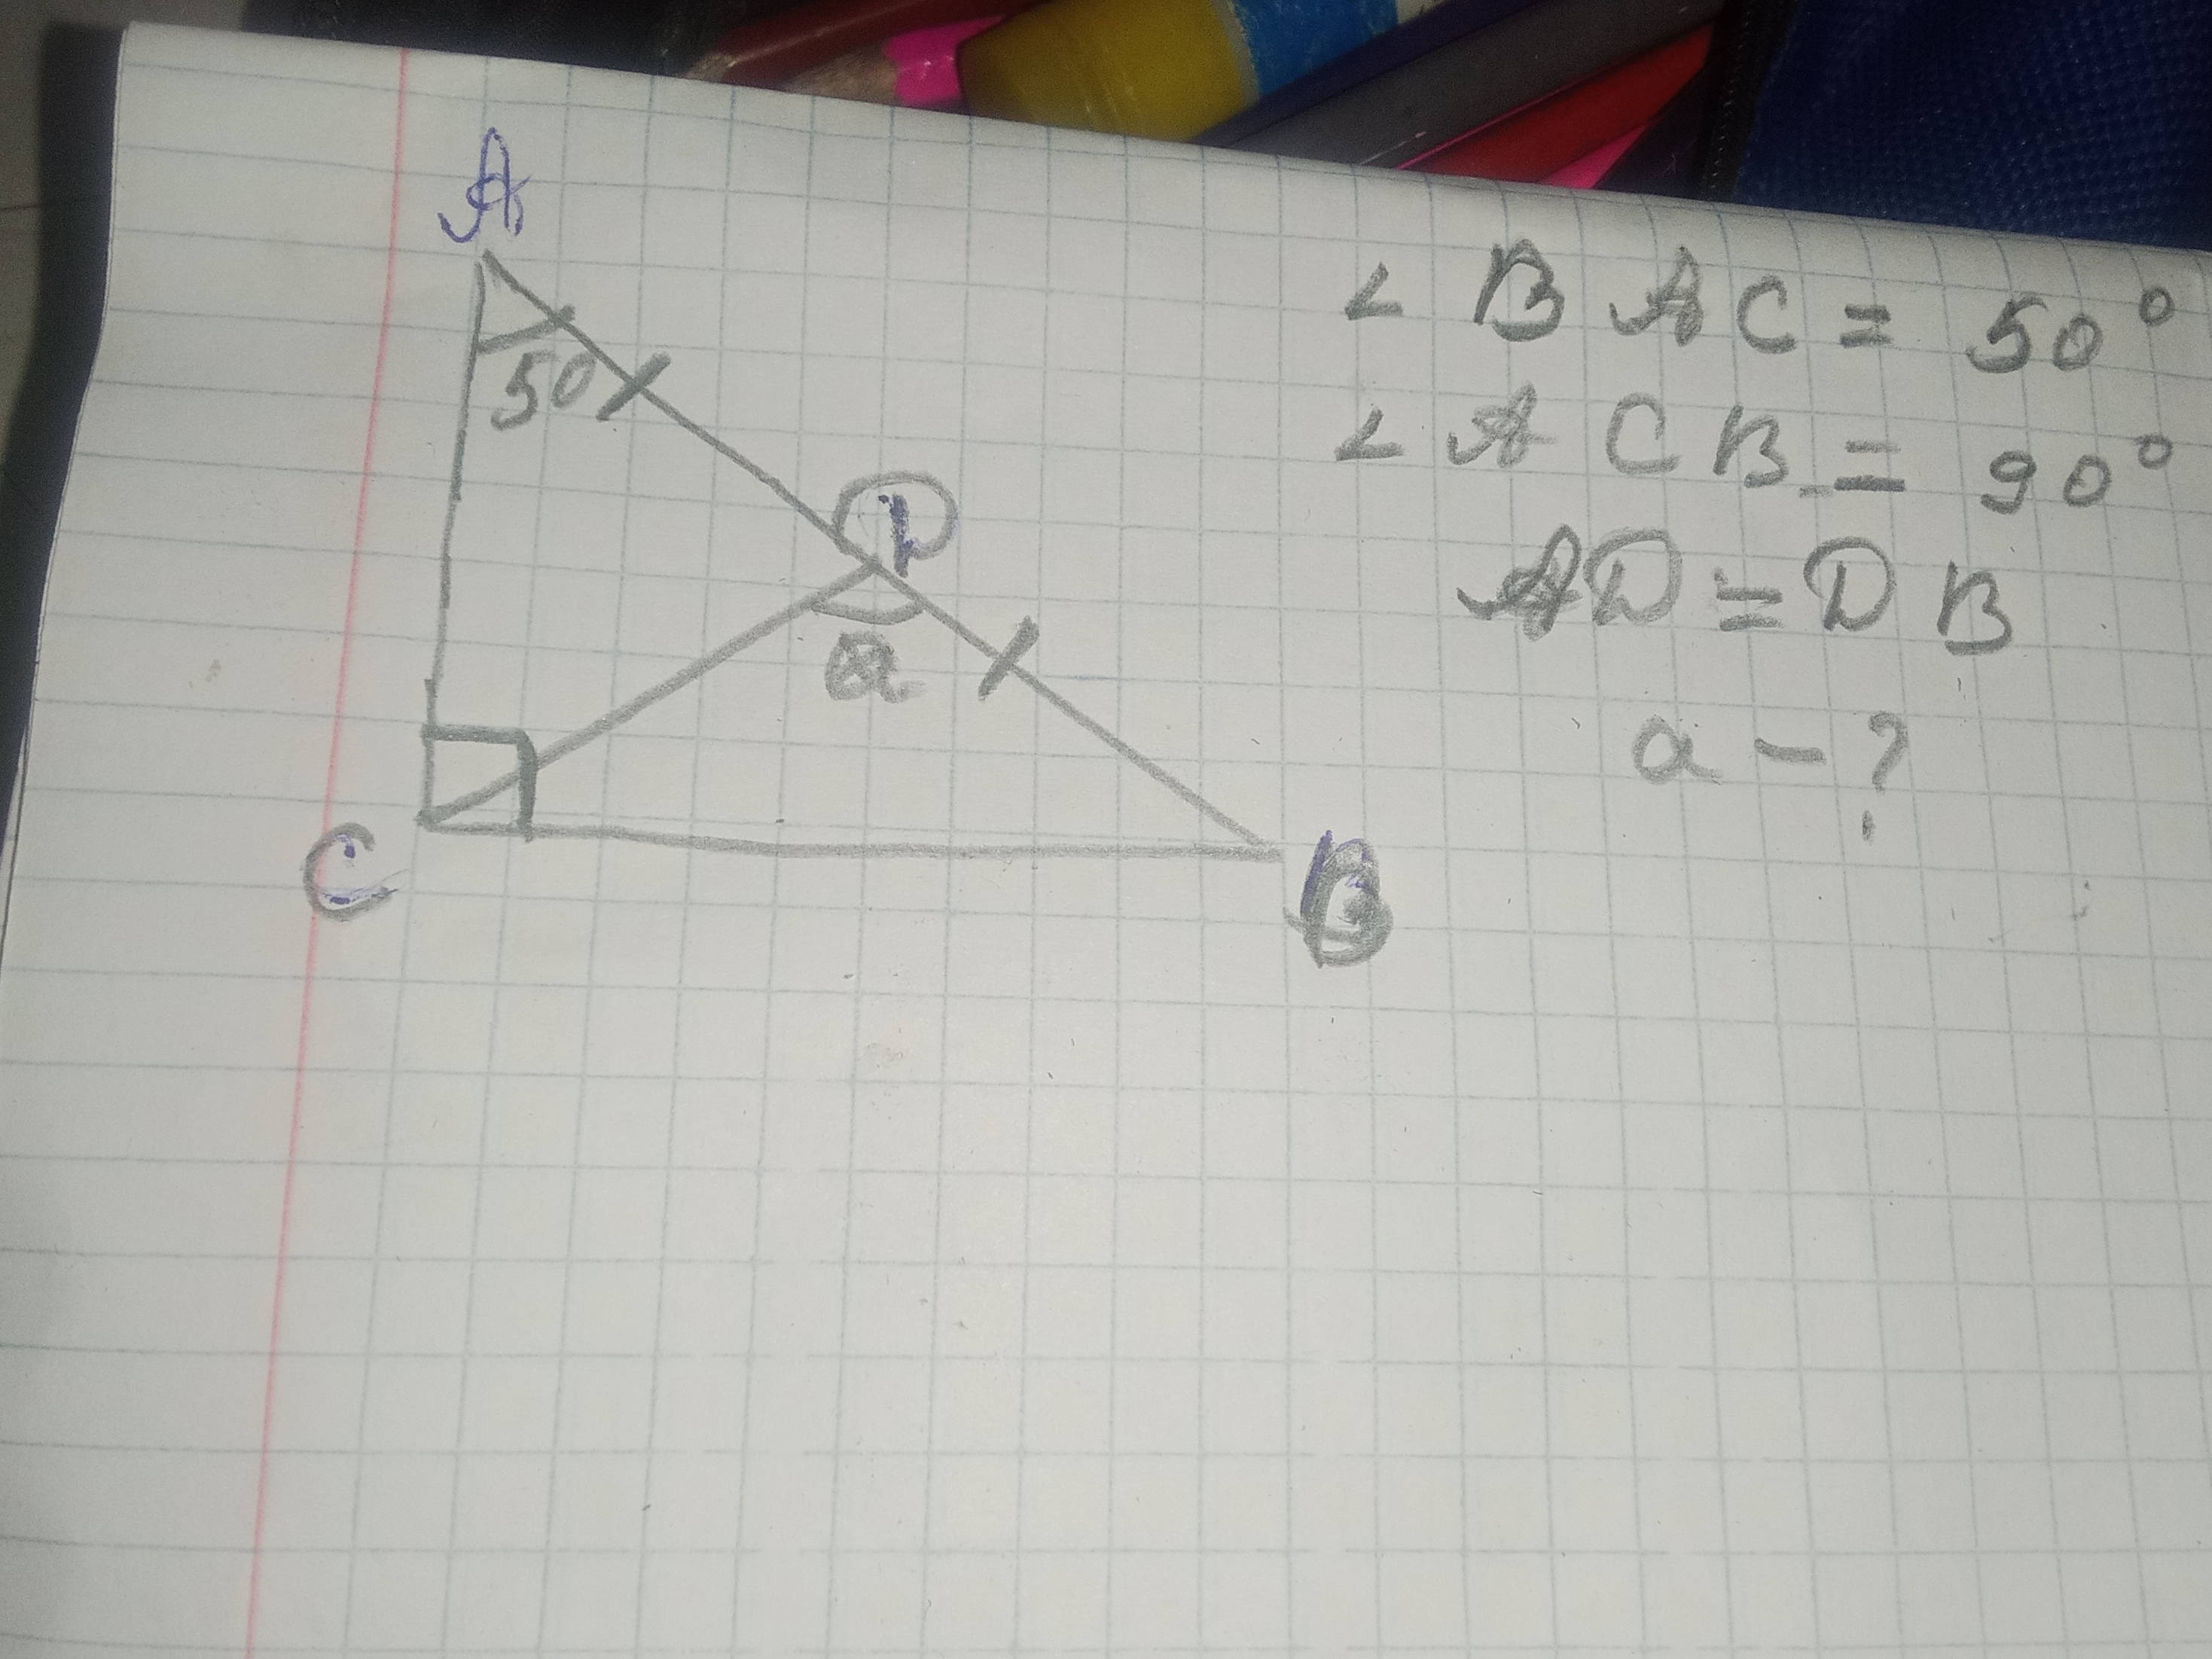 A
50
D
a
C
B
∠ BAC = 50°
∠ ACB = 90°
AD = DB
a - ?